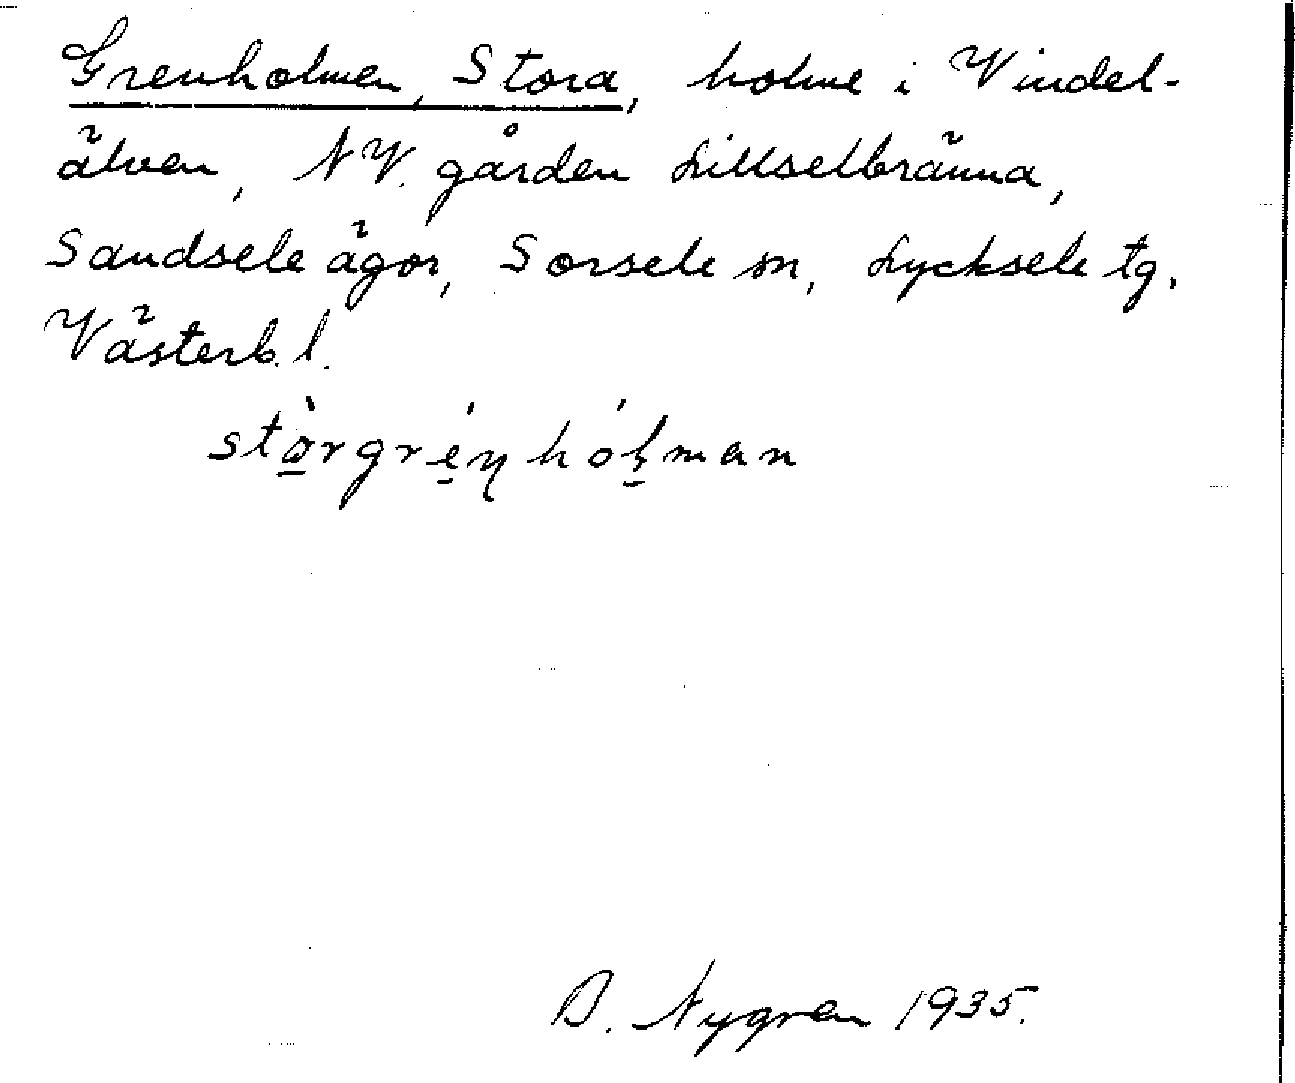 Grenholmen, Stora, holme i Vindel-
älven, NV. gården Lillselbränna,
Sandsele ägor, Sorsele sn, Lycksele tg.
Västerb. l.
stòrgrényhólman
B. Nygren 1935.